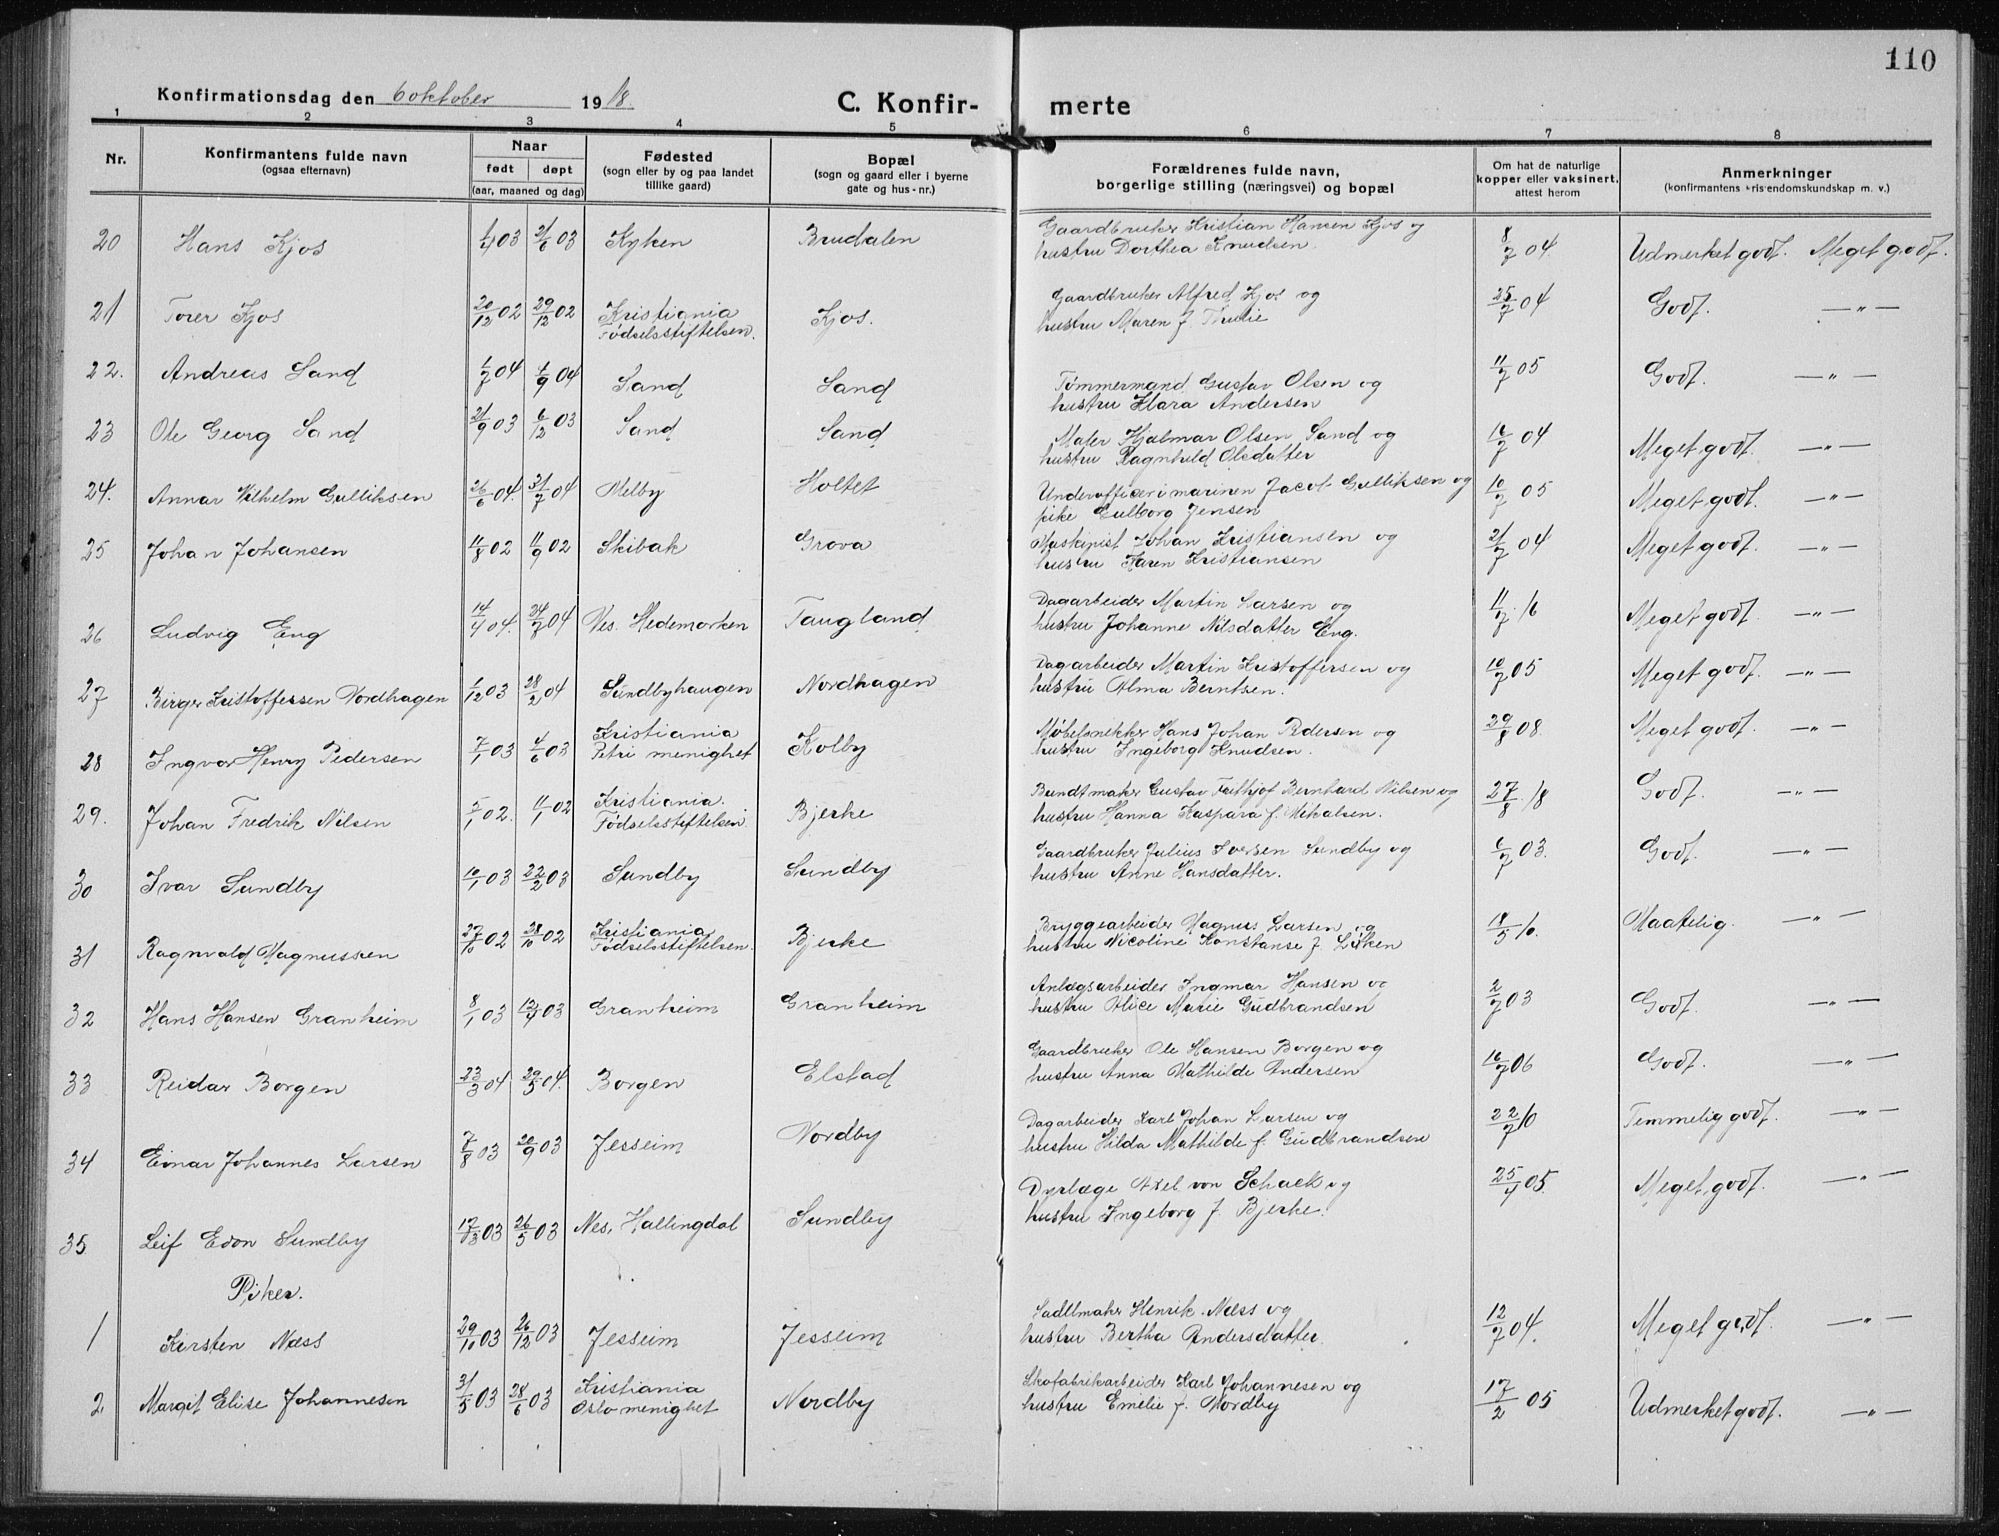 110
Konfirmationsdag den 6 oktober 1918.
C. Konfir-merte
1 2 3 4 5 6 7 8
Nr.
Konfirmantens fulde navn
(ogsaa efternavn)
Naar
født døpt
(aar, maaned og dag)
Fødested
(sogn eller by og paa landet
tillike gaard)
Bopæl
(sogn og gaard eller i byerne
gate og hus-nr.)
Forældrenes fulde navn,
borgerlige stilling (næringsvei) og bopæl
Om hat de naturlige
kopper eller vaksinert,
attest herom
Anmerkninger
(konfirmantens kristendomskundskap m. v.)
20 Hans Kjos 1/4 03 21/6 03 Kyken Brudalen Gaardbruker Kristian Hansen Kjos og
hustru Dorthea Knudsen. 8/7 04 Udmerket godt. Meget godt.
21 Torer Kjos 20/12 02 29/12 02 Kristiania
Fødselsstiftelsen. Kjos. Gaardbruker Alfred Kjos og
hustru Maren f. Thulie 25/7 04 Godt. —"—
22. Andreas Sand 1/7 04 4/9 04 Sand Sand Tømmermand Gustav Olsen og
hustru Klara Andersen 11/7 05 Godt. —"—
23 Ole Georg Sand 21/9 03 6/12 03 Sand Sand Maler Hjalmar Olsen Sand og
hustru Ragnhild Olsdatter 16/7 04 Meget godt. —"—
24. Annar Vilhelm Gulliksen 26/6 04. 31/7 04 Melby Holtet Underofficer i marinen Jacob Gulliksen og
pike Gulborg Jensen 10/7 05 Meget godt. —"—
25 Johan Johansen 11/8 02 11/9 02 Skibak Grova Maskinist Johan Kristiansen og
hustru Karen Kristiansen 21/7 04 Meget godt. —"—
26 Ludvig Eng 14/4 04. 24/7 04 Nes. Hedemarken Taugland Dagarbeider Martin Larsen og
hustru Johanne Nilsdatter Eng. 11/7 16 Meget godt. —"—
27 Birger Kristoffersen Nordhagen 1/12 03 28/2 04 Sundbyhaugen Nordhagen Dagarbeider Martin Kristoffersen og
hustru Alma Berntsen. 10/7 05 Meget godt. —"—
28 Ingvar Henry Pedersen 7/1 03 4/6 03 Kristiania
Petri menighet Kolby Møbelsnekker Hans Johan Pedersen og
hustru Ingeborg Knudsen. 29/8 08. Meget godt. —"—
29. Johan Fredrik Nilsen 5/1 02. 11/1 02 Kristiania.
Fødselsstiftelsen. Bjerke Bundtmaker Gustav Frithjof Bernhard Nilsen og
hustru Hanna Kaspara f. Mikalsen. 27/8 18 Godt. —"—
30 Ivar Sundby 10/1 03 22/2 03 Sundby Sundby Gaardbruker Julius Iversen Sundby og
hustru Anne Hansdatter. 6/7 03. Godt. —"—
31 Ragnvald Magnussen 27/10 02 28/10 02 Kristiania
Fødselsstiftelsen. Bjerke Bryggearbeider Magnus Larsen og
hustru Nicoline Konstanse f. Løken 18/5 10. Maatelig. —"—
32 Hans Hansen Granheim 8/1 03 12/4 03 Granheim Granheim Anlægsarbeider Ingmar Hansen og
hustru Alice Marie Gudbrandsen 2/7 03 Godt. —"—
33 Reidar Borgen 23/3 04 29/5 04. Borgen Elstad Gaardbruker Ole Hansen Borgen og
hustru Anna Mathilde Andersen 16/7 06 Godt. —"—
34 Einar Johannes Larsen 7/8 03 20/9 03 Jesseim Nordby Dagarbeider Karl Johan Larsen og
hustru Hilda Mathilde f. Gudbrandsen 22/7 10 Temmelig godt. —"—
35 Leif Edon Sundby 17/3 03 26/5 03 Nes, Hallingdal Sundby Dyrlæge Axel von Schack og
hustru Ingeborg f. Bjerke. 25/4 05. Meget godt. —"—
Piker.
1 Kirsten Næss 29/10 03 26/12 03 Jesseim Jesseim Sadelmaker Henrik Næss og
hustru Bertha Andersdatter. 12/7 04. Meget godt. —"—
2 Margit Elise Johannesen 31/5 03 28/6 03 Kristiania
Oslo menighet Nordby Skofabrikarbeider Karl Johannesen og
hustru Emelie f. Nordby 17/2 05 Udmerket godt. —"—